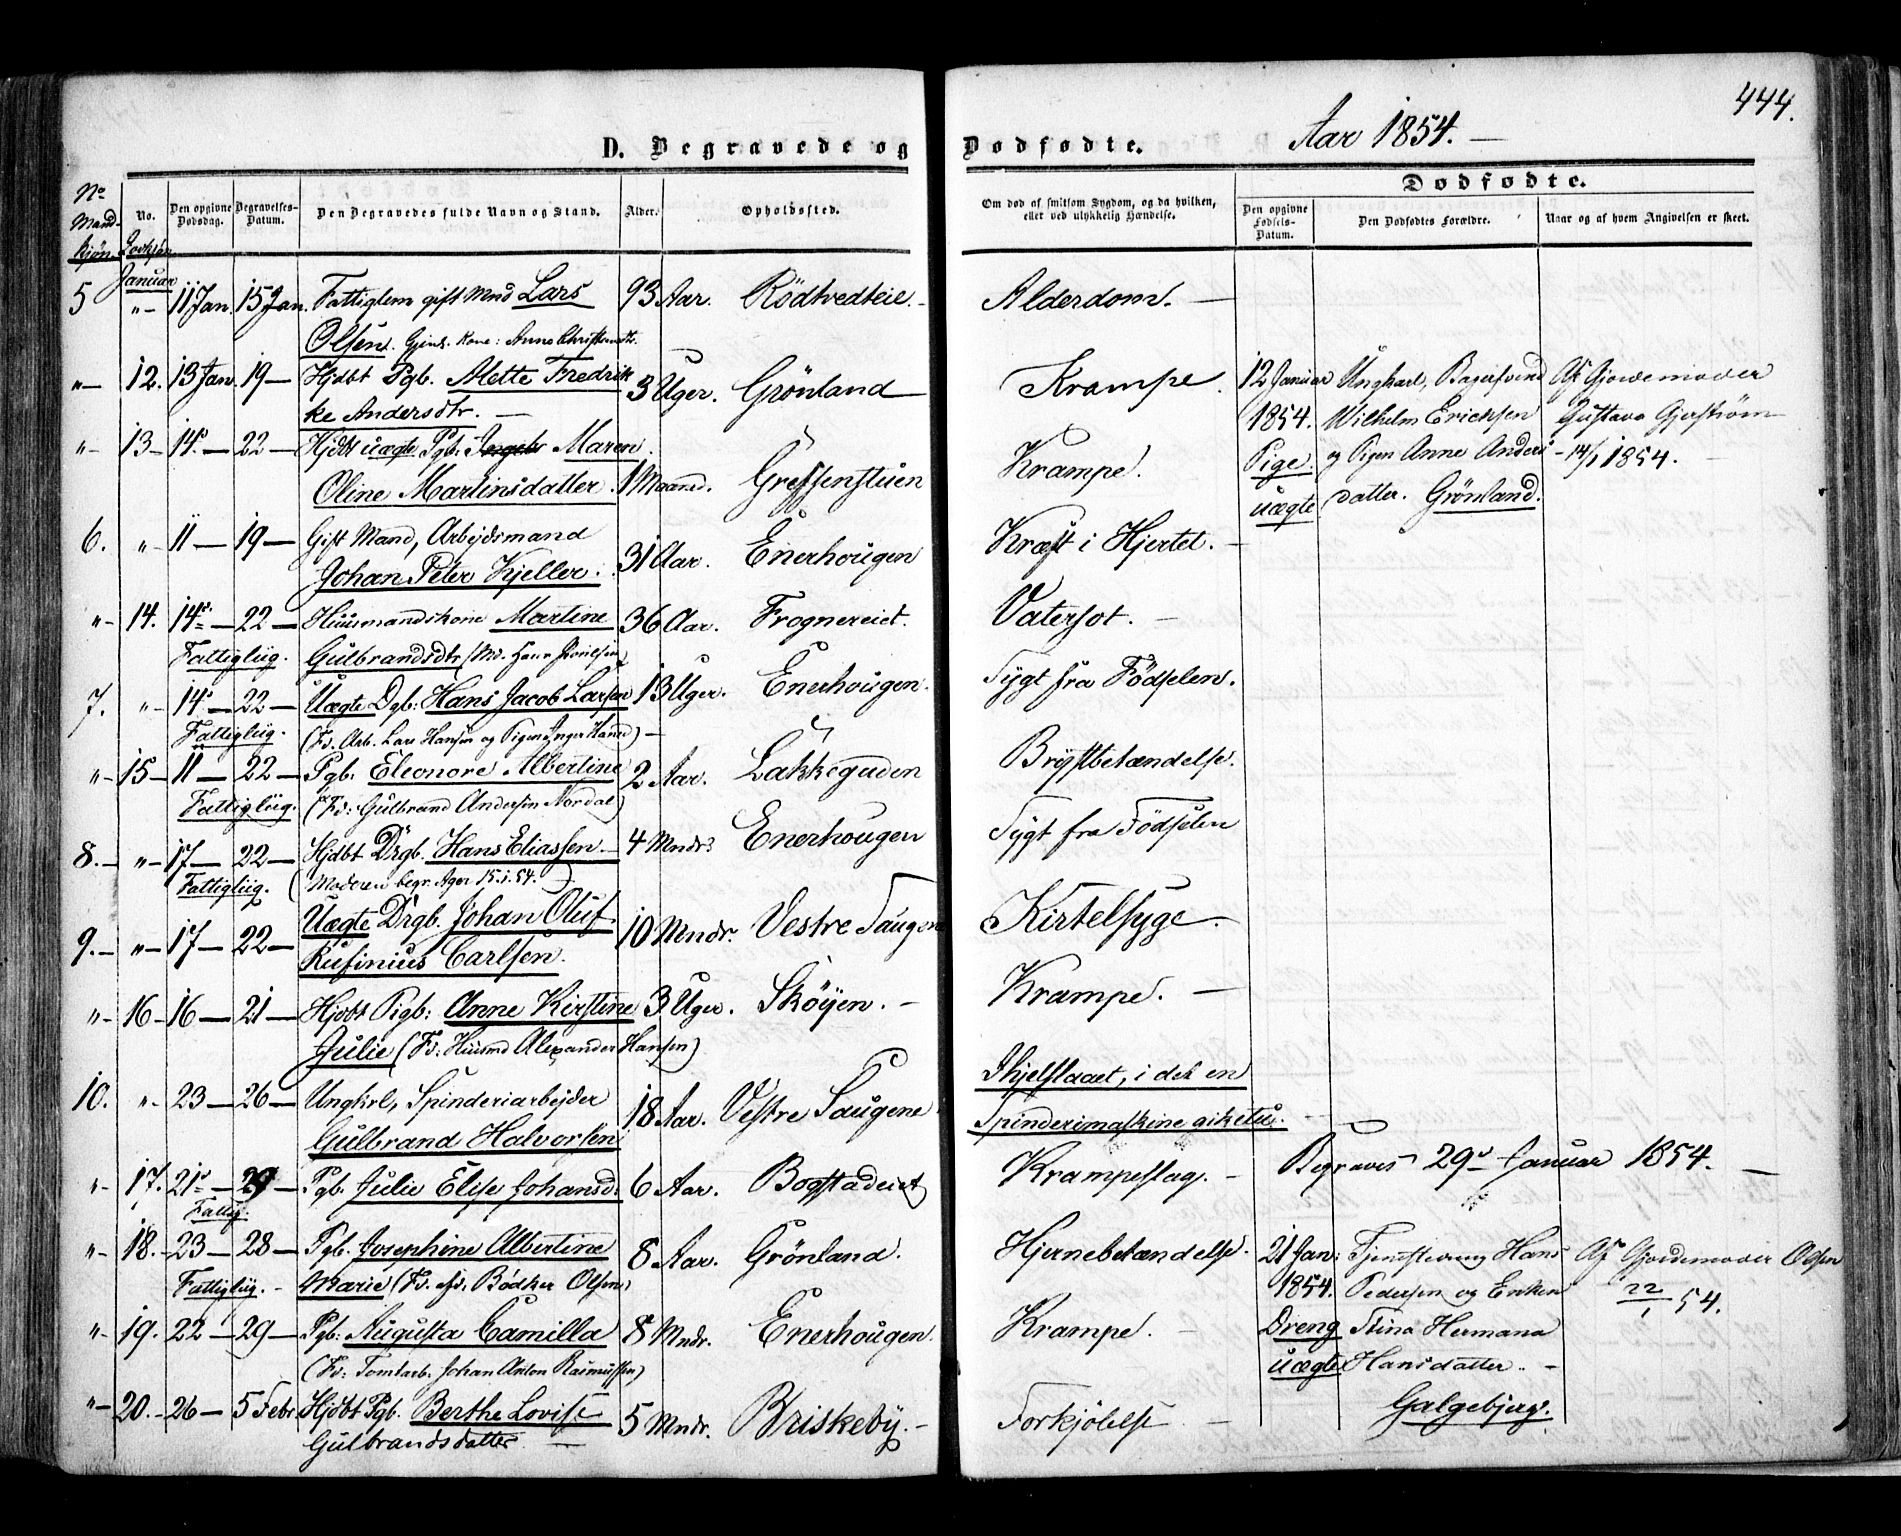 444.
Aar 1854. —
D. Begravede og Dødfødte.
No Mandkjøn.
No. Qvekjøn
Den opgivne Dødsdag.
Begravelses-Datum.
Den Begravedes fulde Navn og Stand.
Alder.
Opholdssted.
Om død af smitsom Sygdom, og da hvilken, eller ved ulykkelig Hændelse.
Dødfødte.
Den opgivne Fødsels-Datum.
Den Dødfødtes Forældre.
Naar og af hvem Angivelsen er skeet.
Januar
5 "- 11 Jan. 15 Jan. Fattiglem gift Mnd Lars 93 Aar. Rödtvedteie. - Alderdom. —
Olsen. Gjens. Kone: Anne Christensdtr.
"- 12. 13 Jan. 19 — Hjdbt Pgb. Alette Fredrik 3 Uger. Grönland Krampe.
ke Andersdtr. —
12 Januar Ungkarl, Bagersvend Af Gjordemoder
1854. Wilhelm Ericksen Gustava Gjerström
Pige. og Pigen Anne Anders - 14/1 1854.
uægte datter. Grönland.
"- 13 — 14de — 22 — Hjdbt uægte Pgb. Maren
Oline Martinsdatter. 1 Maaned. Grefsenstuen Krampe.
6. "- 11 — 19 — Gift Mand, Arbejdsmand
Johan Peter Kjeller. 31 Aar. Enerhougen Kræft i Hjertet. -
"- 14. 14de — 22 — Huusmandskone Martine 36 Aar. Frognereiet. Vatersot. —
Fattigliig. Gulbrandsdtr (Md. Hans
7. "- 14de — 22 — Uægte Dgb: Hans Jacob Larsen 13 Uger. Enerhougen. Sygt fra Födselen.
Fattigliig. (Fd. Arb. Lars Hansen og Pigen Inger Hansd) —
"- 15 — 11 — 22 — Pgb. Eleonore Albertine 2 Aar. Lakkegaden Brystbetændelse.
Fattigliig. (Fd: Gulbrand Andersen Nordal)
8. — "- 17 — 22 — Hjdbt Drgb. Hans Eliassen. 4 Mndr Enerhougen Sygt fra Födselen
Fattigliig. (Moderen begr. Ager 15.1.54.)
9. — "- 17 — 22 — Uægte Drgb. Johan Oluf 10 Mndr. Vestre Saugene Kirtelsyge. -
Rufinius Carlsen.
"- 16 — 16 — 21 — Hjdbt Pigb: Anne Kirstine 3 Uger. Sköyen. — Krampe. —
Julie (Fd: Huusmd Alexander Hansen)
10. "- 23 — 26 — Ungkrl, Spinderiarbejder
Gulbrand Halvorsen 18 Aar. Vestre Saugene
Ihjelslaaet, i det en
Spinderimaskine gik itu. -
"- 17. 21de — 29 — Pgb. Julie Elise Johansd. 6 Aar. Bogstadeiet Krampeslag. - Begraves 29de Januar 1854. —
Fattig.
"- 18. 23 — 28 — Pgb. Josephine Albertine 8 Aar. Grönland. Hjernebetændelse.
Fattigliig. - Marie (Fd. Bödker Olsen)
21 Jan: Tjenestedreng Hans Af Gjordemoder Olsen
1854. Pedersen og Enken 22/1 54.
Dreng Stina Hermana
uægte Hansdatter. -
Galgebjerg.
"- 19. 22 — 29 — Pgb: Augusta Camilla 8 Mndr. Enerhougen. Krampe. -
(Fd: Tomtarb. Johan Anton Rasmussen)
"- 20. — 26 — 5 Febr. Hjdbt Pgb. Berthe Lovise 5 Mndr. Briskeby. - Forkjölelse —
Gulbrandsdatter —